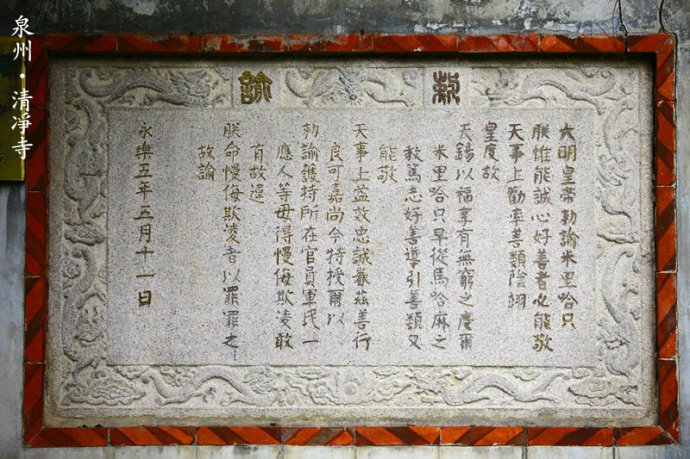 泉州·清凈寺
敕諭
大明皇帝勑諭米里哈只
朕惟能誠心好善者必能敬
天事上勸率善類陰翊
皇度故
天錫以福享有無窮之慶爾
米里哈只早從馬哈麻之
教篤志好善導引善類又
能敬
天事上益效忠誠眷茲善行
良可嘉尚今特授爾以
勑諭護持所在官員軍民一
應人等毋得慢侮欺凌敢
有故違
朕命慢侮欺凌者以罪罪之
故諭
永樂五年五月十一日